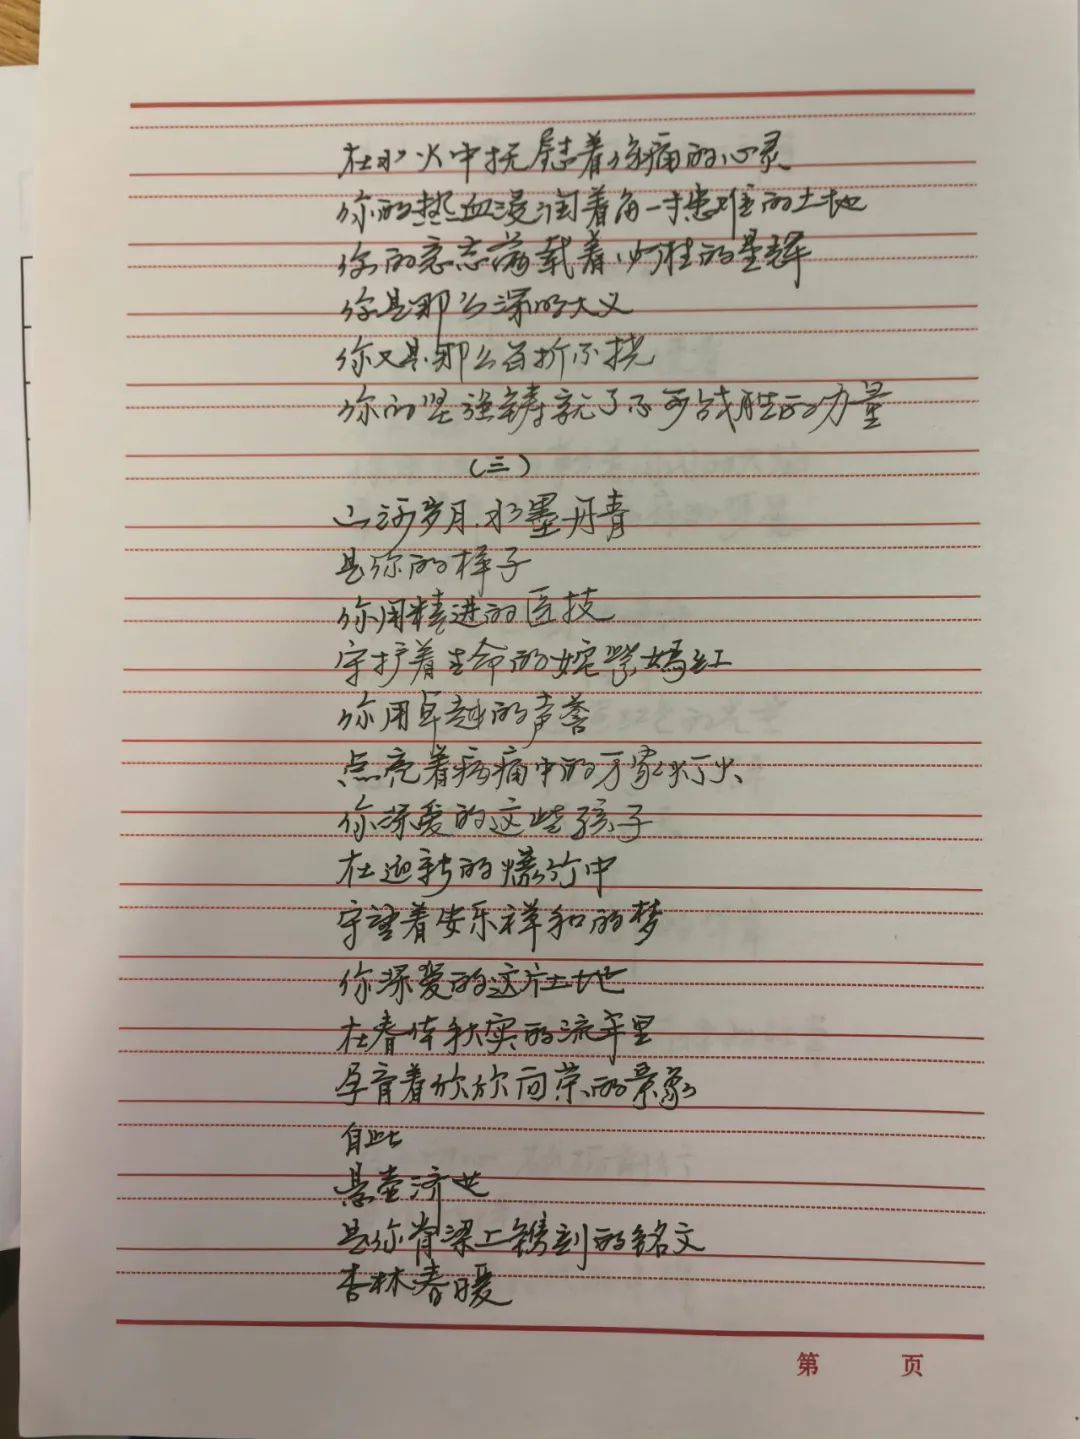 在水火中抚慰着伤痛的心灵
你的热血浸润着每一寸患难的土地
你的意志满载着灿烂的星辉
你是那么深的大义
你又是那么百折不挠
你的坚强铸就了不可战胜的力量
(三)
山河岁月.水墨丹青
是你的样子
你用精进的医技
守护着生命的姹紫嫣红
你用卓越的声誉
点亮着病痛中的万家灯火
你深爱的这些孩子
在迎新的爆竹中
守望着安乐祥和的梦
你深爱的这片土地
在春华秋实的流年里
孕育着欣欣向荣的景象
自此
悬壶济世
是你脊梁上镌刻的铭文
杏林春暖
第 页